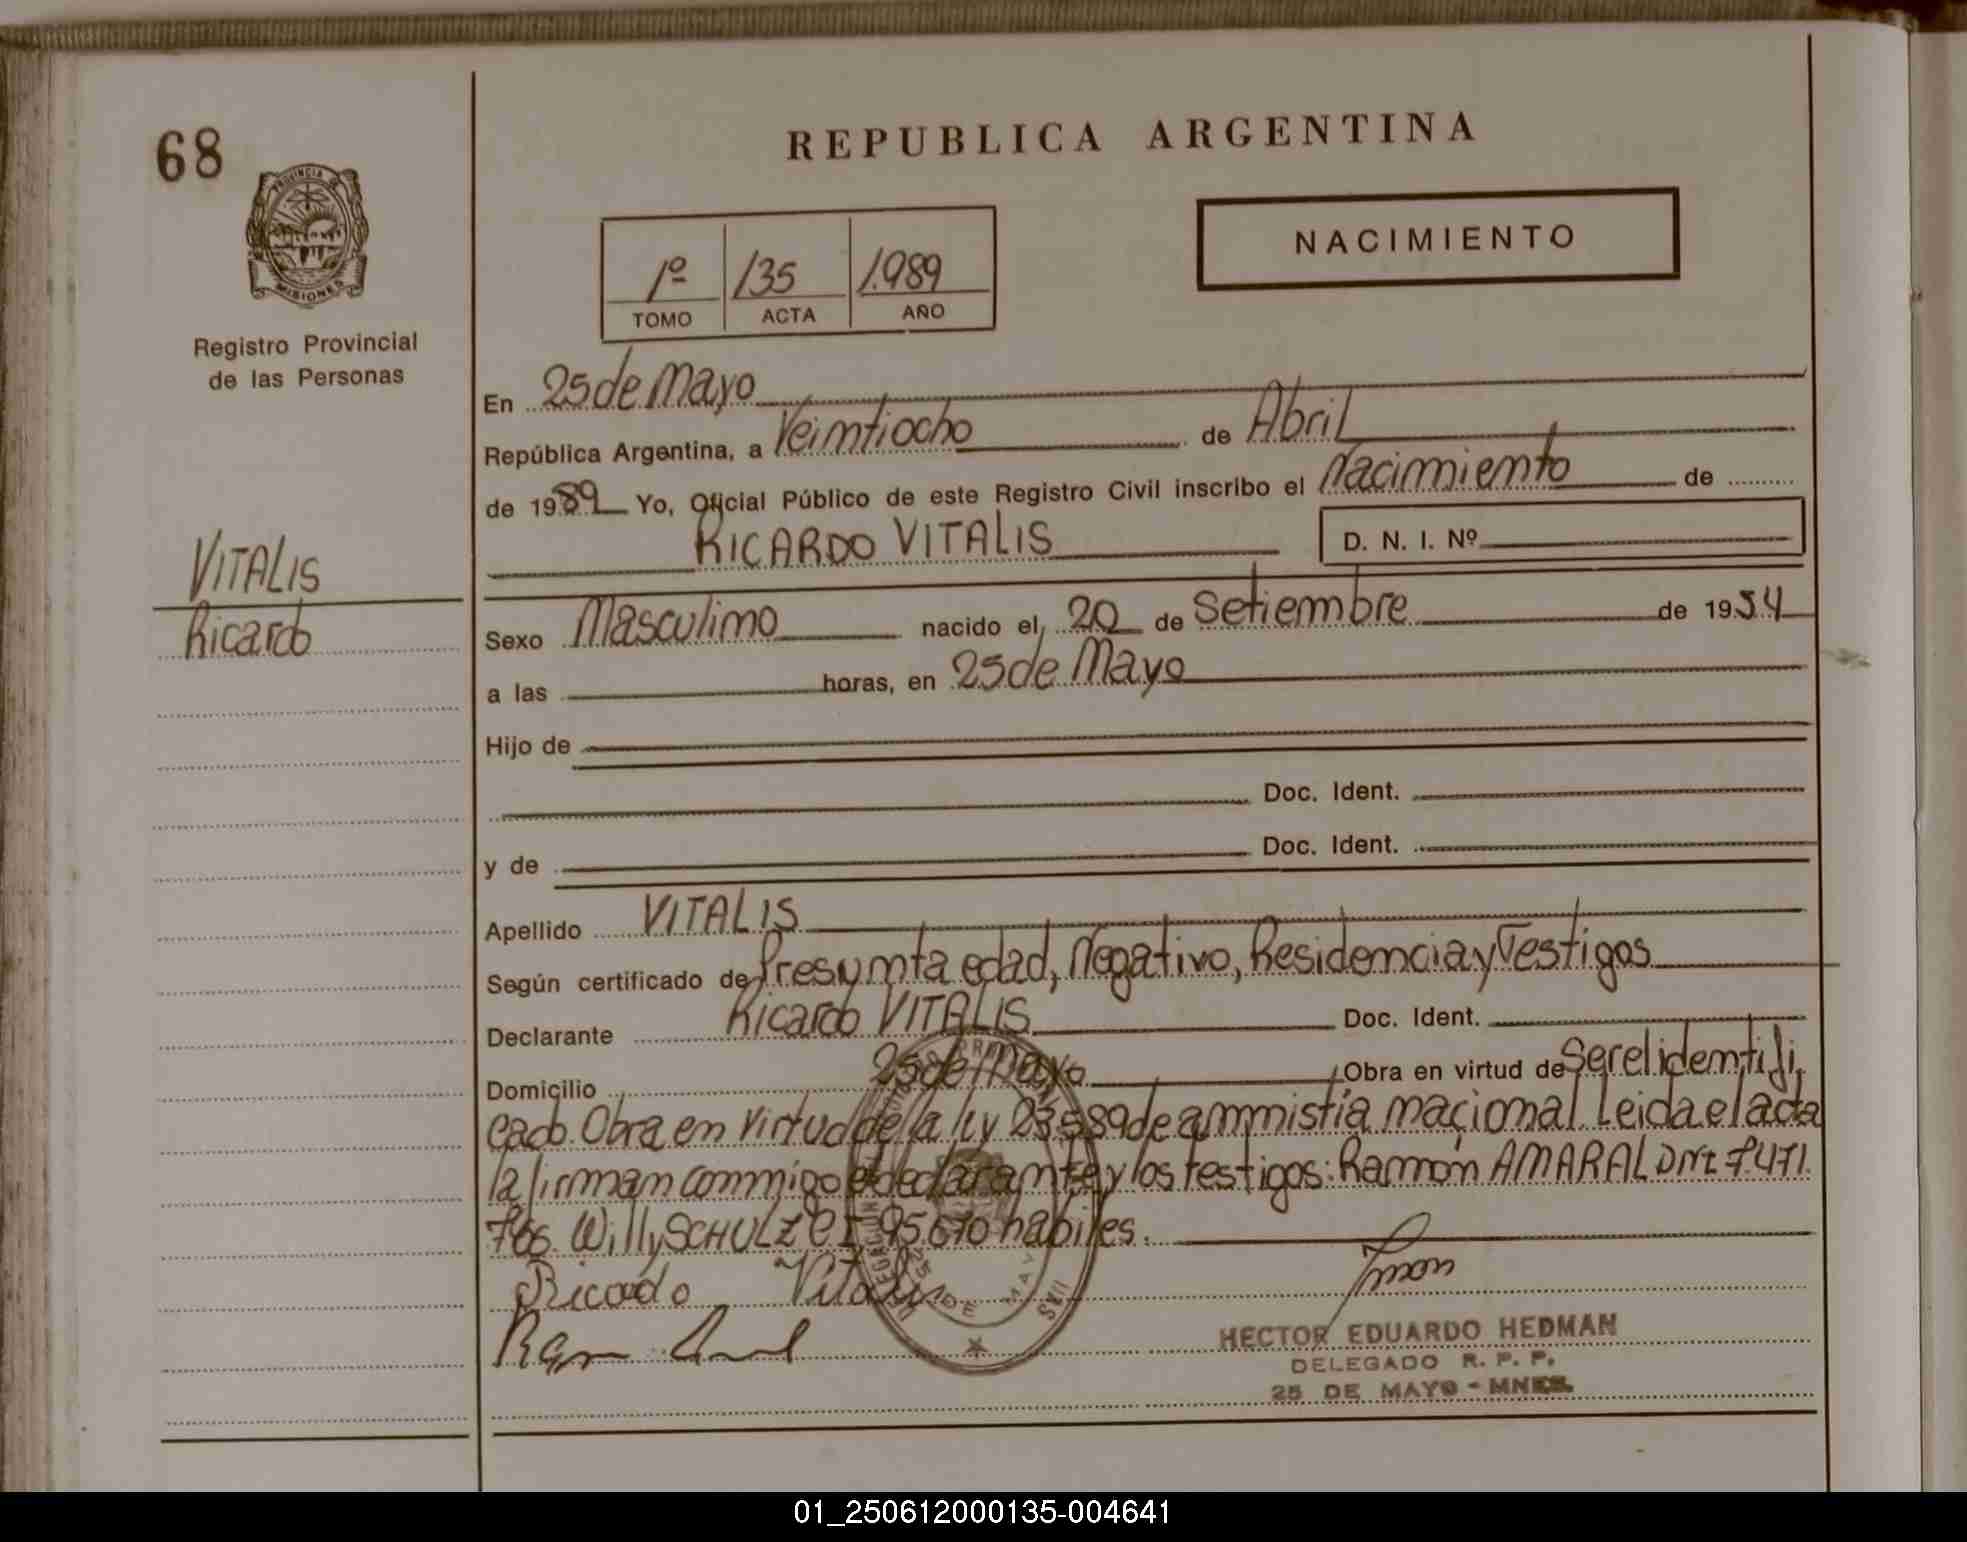 68
REPUBLICA ARGENTINA
PROVINCIA DE
MISIONES
NACIMIENTO
1º 135 1.989
TOMO ACTA AÑO
Registro Provincial
de las Personas
En 25 de Mayo
República Argentina, a Veimtiocho de Abril
de 1989 Yo, Oficial Público de este Registro Civil inscribo el Nacimiemto de
RICARDO VITALIS D. N. I. Nº
VITALIS
Ricardo
Sexo Masculimo nacido el 20 de Setiembre de 1954
a las horas, en 25 de Mayo
Hijo de
Doc. Ident.
y de Doc. Ident.
Apellido VITALIS
Según certificado de Presumta edad, Negativo, Residencia y Testigos
Declarante Ricardo VITALIS Doc. Ident.
Domicilio 25 de Mayo Obra en virtud de Ser el idemtifi,
cado. Obra en virtud de la ley 23589 de ammistía nacional. Leida el acta
la firman commigo el declarante y los testigos: Ramón AMARAL DNI 7.471.
766. Willy SCHULZ CI 95.670 habiles.
Ricardo Vitalis
HECTOR EDUARDO HEDMAN
DELEGADO R. P. P.
25 DE MAYO - MNES.
01_250612000135-004641